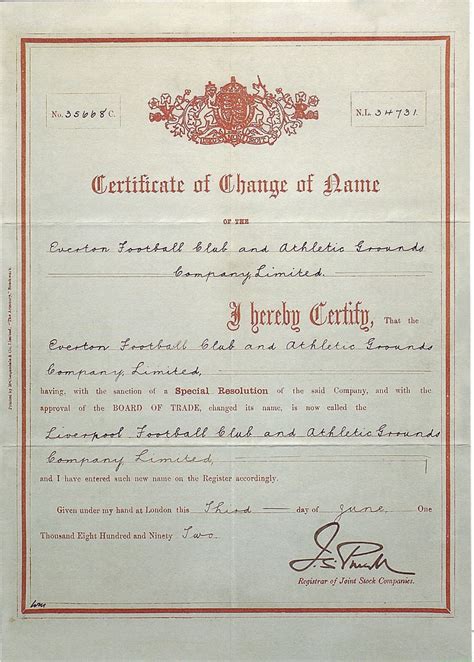 No. 35668 C.
N.L. 34731.
Certificate of Change of Name
OF THE
Everton Football Club and Athletic Grounds
Company, Limited.
I hereby Certify, That the
Everton Football Club and Athletic Grounds
Company, Limited,
having, with the sanction of a Special Resolution of the said Company, and with the
approval of the BOARD OF TRADE, changed its name, is now called the
Liverpool Football Club and Athletic Grounds
Company, Limited,
and I have entered such new name on the Register accordingly.
Given under my hand at London this Third day of June, One
Thousand Eight Hundred and Ninety Two.
Registrar of Joint Stock Companies.